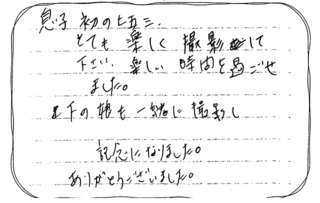 息子初の七五三、
とても楽しく撮影して
下さい、楽しい時間を過ごせ
ました。
下の娘も一緒に撮影し
記念になりました。
ありがとうございました。